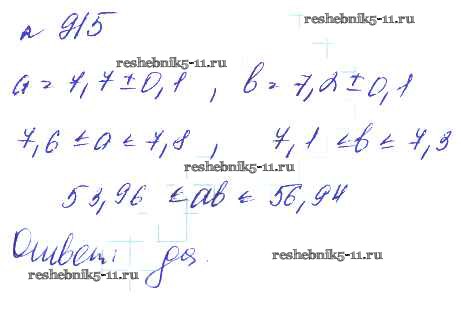 № 915
reshebnik5-11.ru
a = 7,7 ± 0,1 , b = 7,2 ± 0,1
7,6 ≤ a ≤ 7,8 , 7,1 ≤ b ≤ 7,3
reshebnik5-11.ru
53,96 ≤ ab ≤ 56,94
Ответ: да.
reshebnik5-11.ru
reshebnik5-11.ru